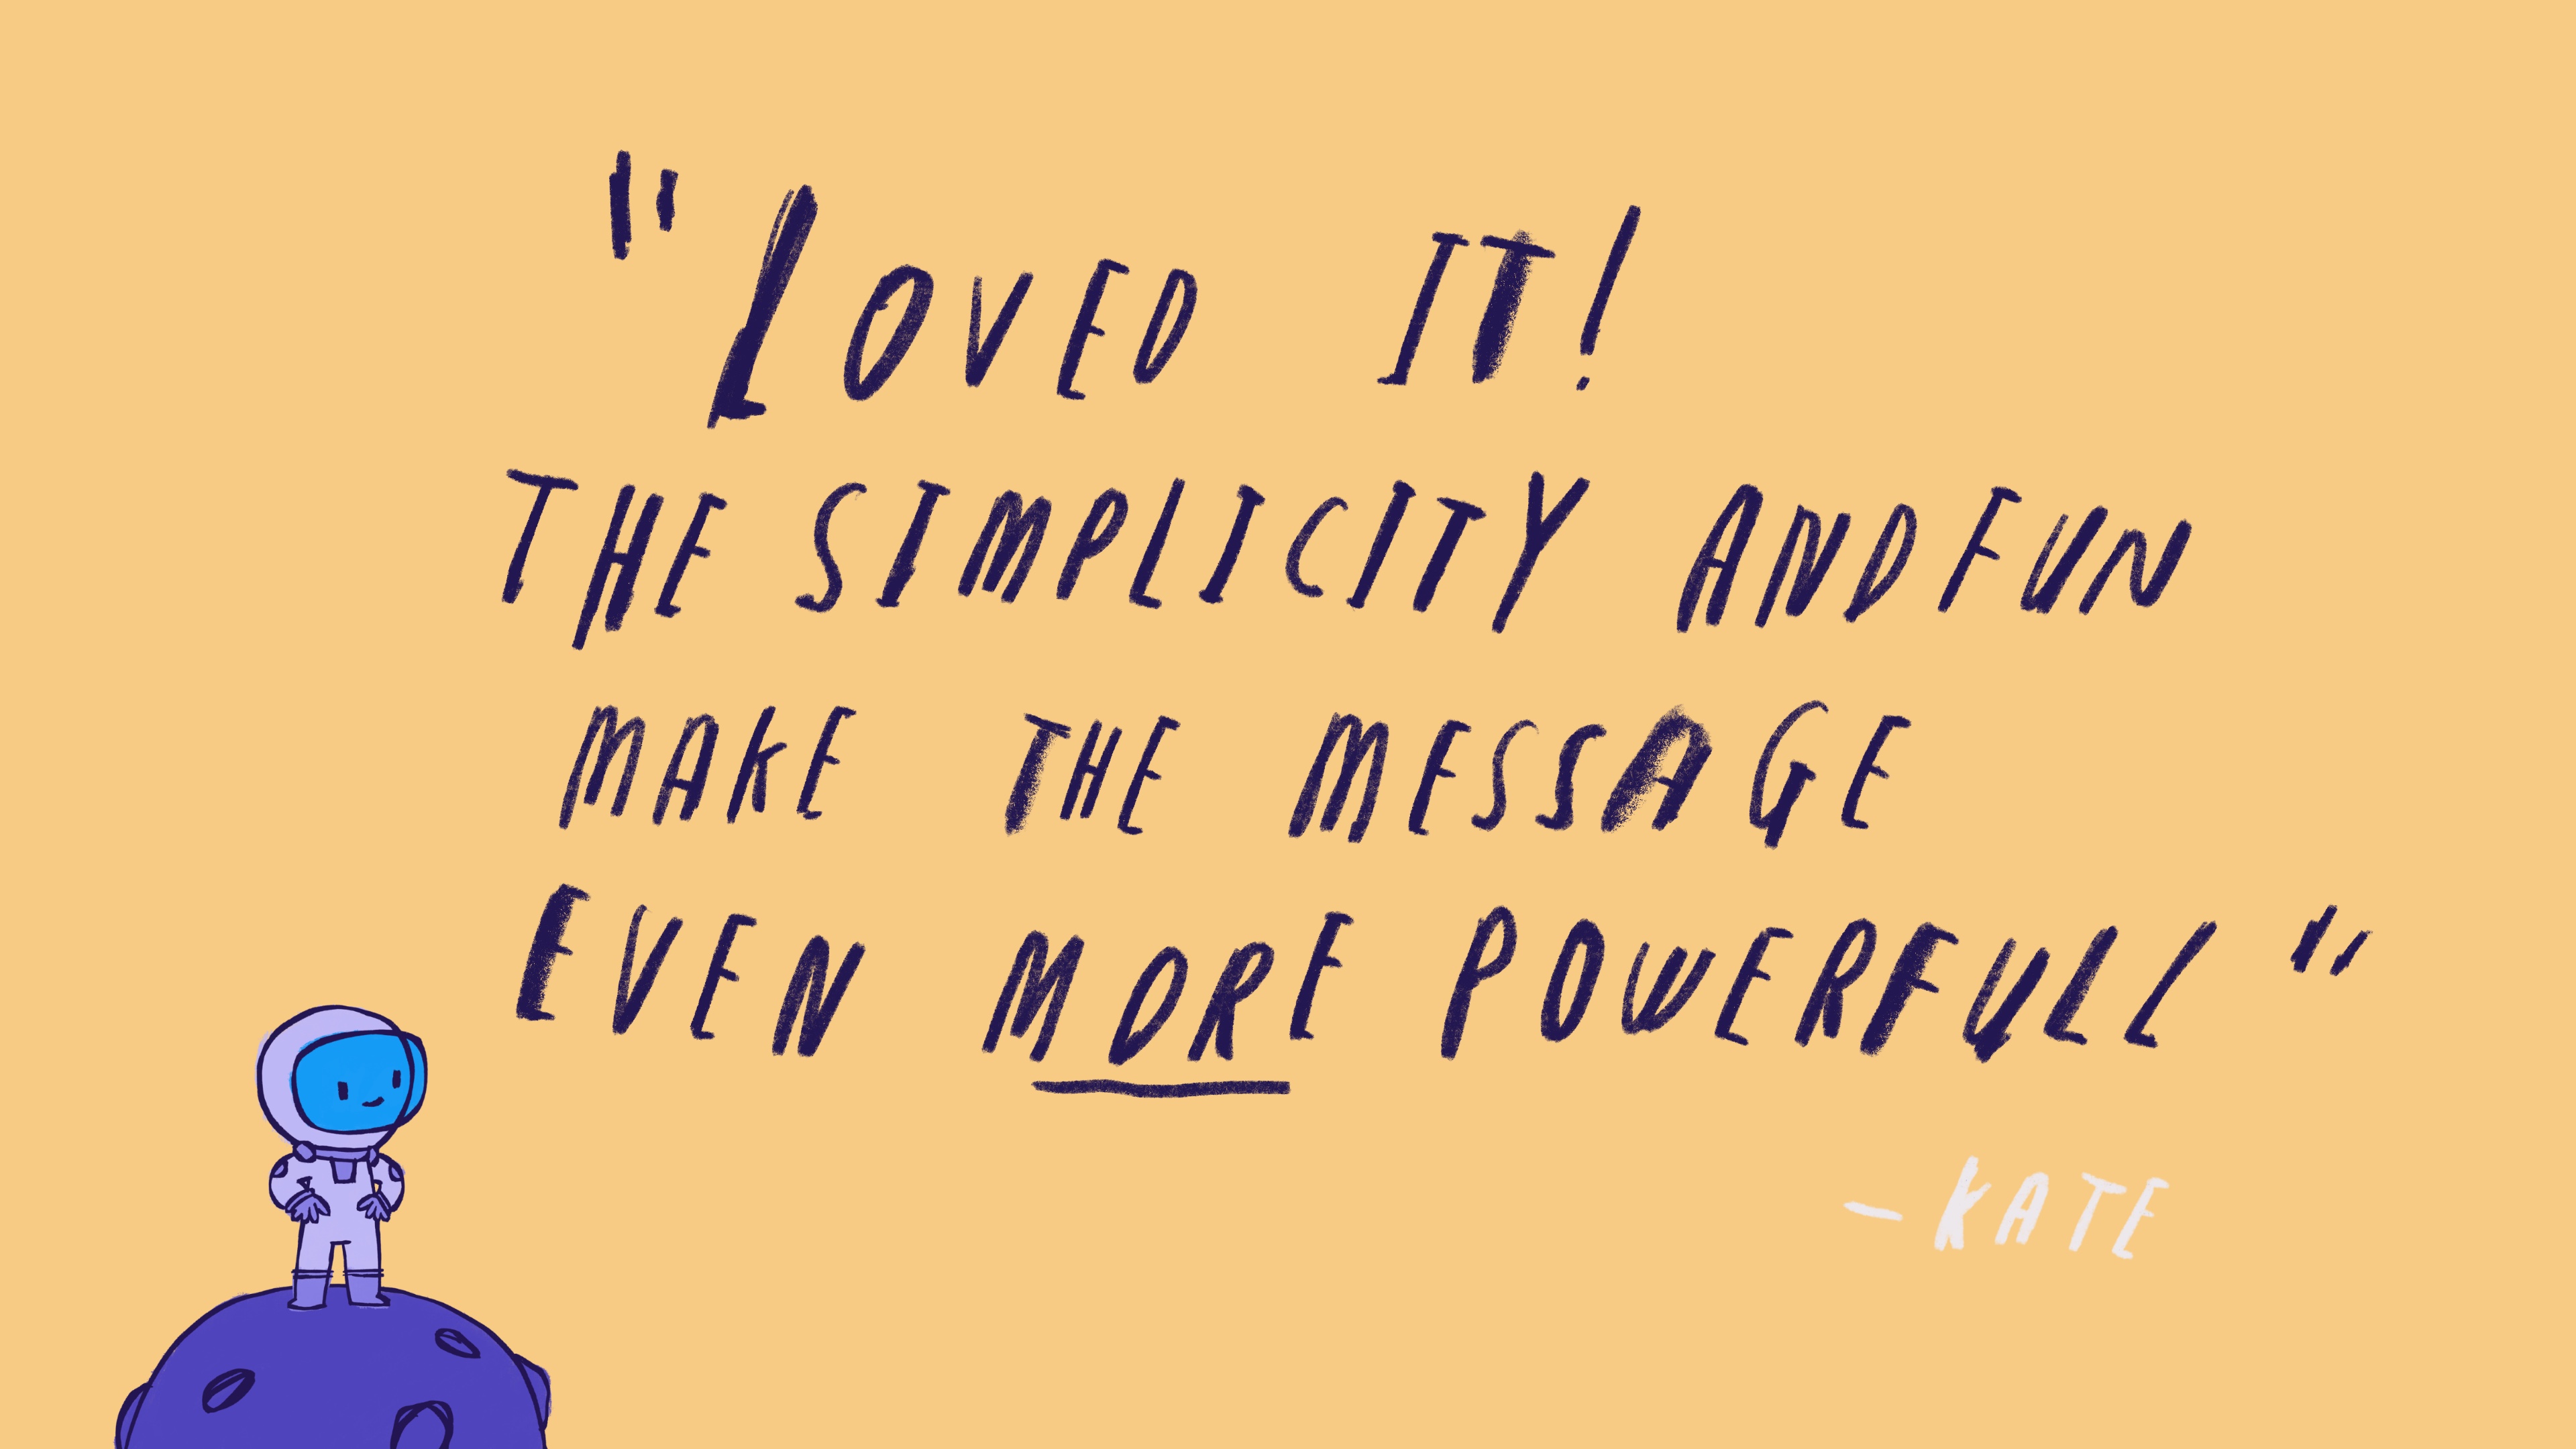 "LOVED IT!
THE SIMPLICITY AND FUN
MAKE THE MESSAGE
EVEN MORE POWERFULL"
– KATE